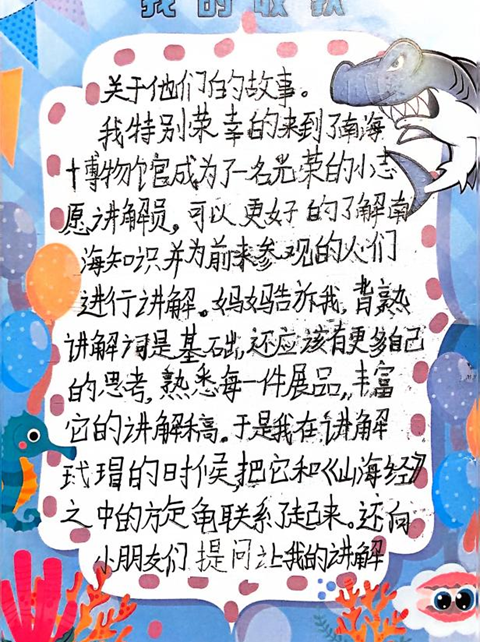 我的收获
关于他们的故事。
我特别荣幸的来到了南海
博物馆官成为了一名光荣的小志
愿讲解员，可以更好的了解南
海知识并为前来参观的人们
进行讲解。妈妈告诉我，背熟
讲解词是基础，还应该有更多自己
的思考，熟悉每一件展品，丰富
它的讲解稿。于是我在讲解
玳瑁的时候，把它和《山海经》
之中的旋龟联系了起来。还向
小朋友们提问让我的讲解